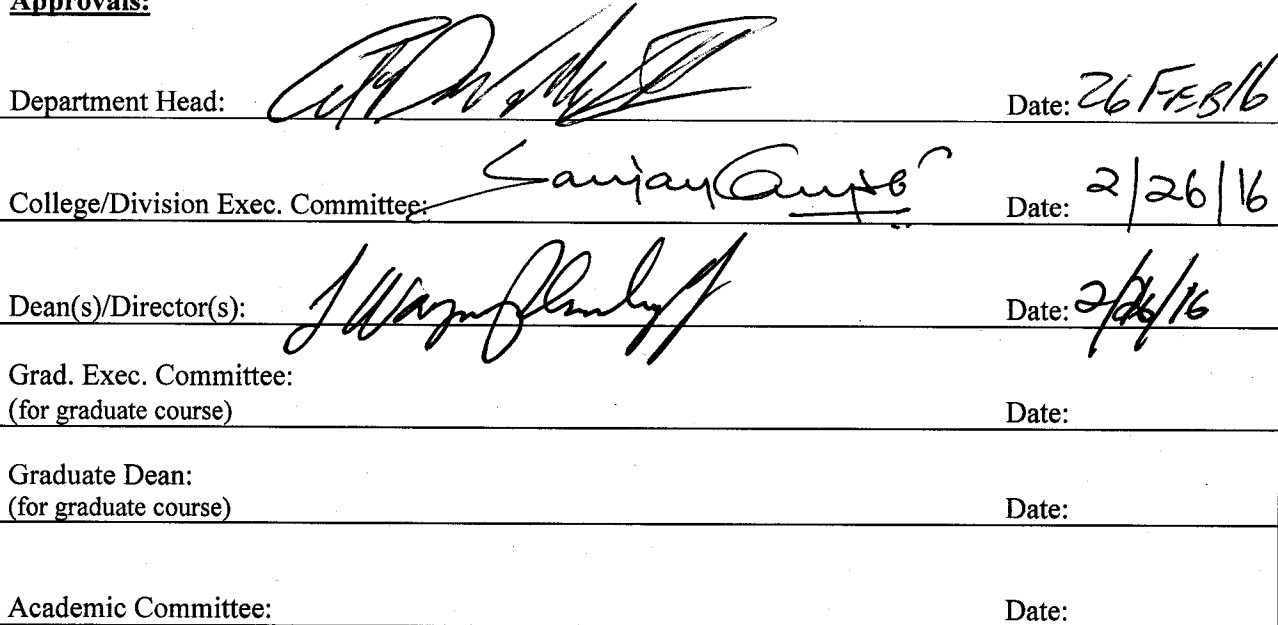 Approvals:
Department Head: Date: 26 FEB16
College/Division Exec. Committee: Sanjay Date: 2/26/16
Dean(s)/Director(s): J Wayne Date: 2/26/16
Grad. Exec. Committee:
(for graduate course) Date:
Graduate Dean:
(for graduate course) Date:
Academic Committee: Date: